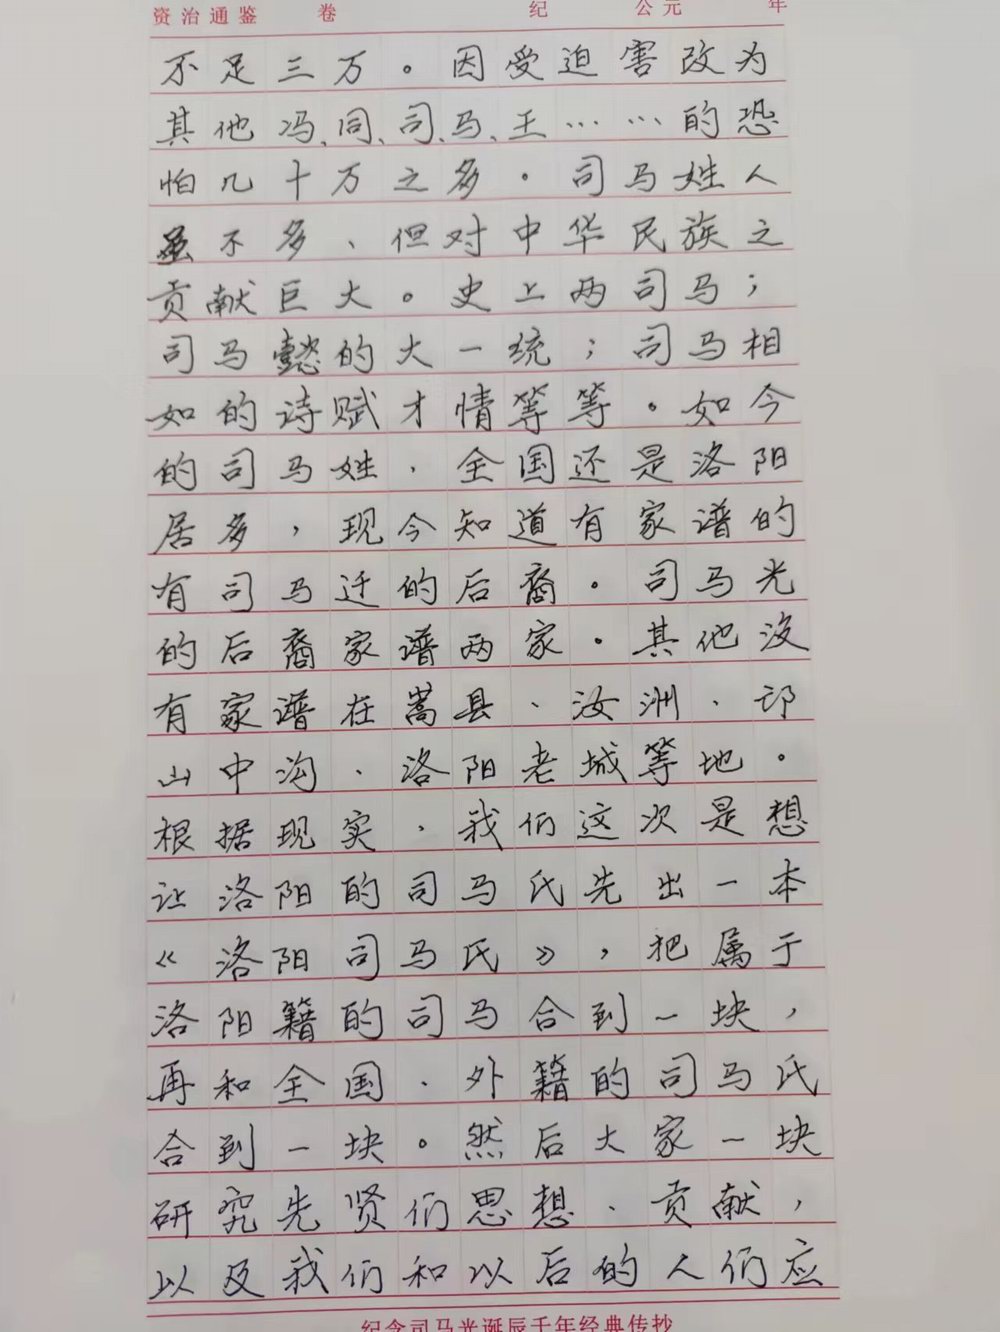 资治通鉴 卷 纪 公元 年
不足三万。因受迫害改为
其他冯、同、司、马、王……的恐
怕几十万之多。司马姓人
虽不多、但对中华民族之
贡献巨大。史上两司马；
司马懿的大一统；司马相
如的诗赋才情等等。如今
的司马姓、全国还是洛阳
居多，现今知道有家谱的
有司马迁的后裔。司马光
的后裔家谱两家。其他没
有家谱在嵩县、汝洲、邙
山中沟、洛阳老城等地。
根据现实、我们这次是想
让洛阳的司马氏先出一本
《洛阳司马氏》，把属于
洛阳籍的司马合到一块，
再和全国、外籍的司马氏
合到一块。然后大家一块
研究先贤们思想、贡献，
以及我们和以后的人们应
纪念司马光诞辰千年经典传抄